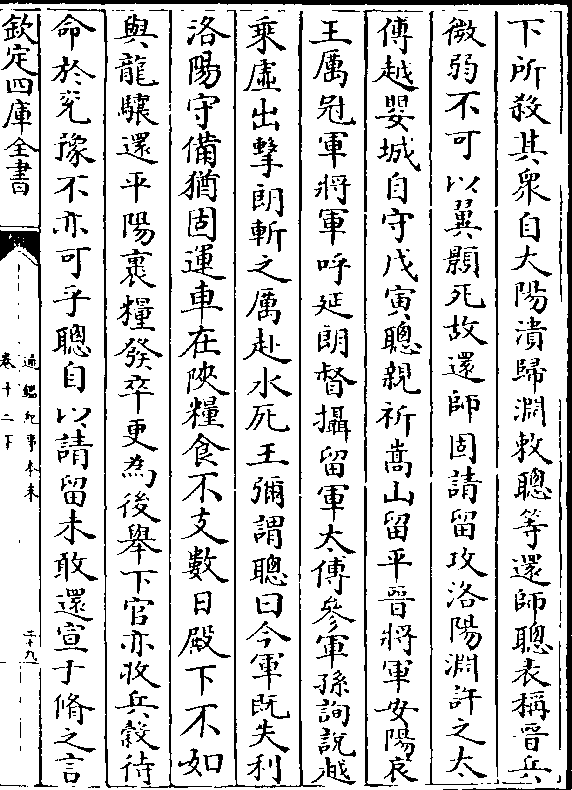 下所殺其衆自大陽潰歸淵敕聰等還師聰表稱晉兵
微弱不可以翼顥死故還師固請留攻洛陽淵許之太
傅越嬰城自守戊寅聰親祈嵩山留平晉將軍安陽哀
王厲冠軍將軍呼延朗督攝留軍太傅參軍孫詢説越
乘虛出擊朗斬之厲赴水死王彌謂聰曰今軍既失利
洛陽守備猶固運車在陜糧食不支數日殿下不如
與龍驤還平陽裹糧發卒更為後舉下官亦收兵穀待
命於兖豫不亦可乎聰自以請留未敢還宣于脩之言
欽定四庫全書
通鑑紀事本末
卷十二下
二十九